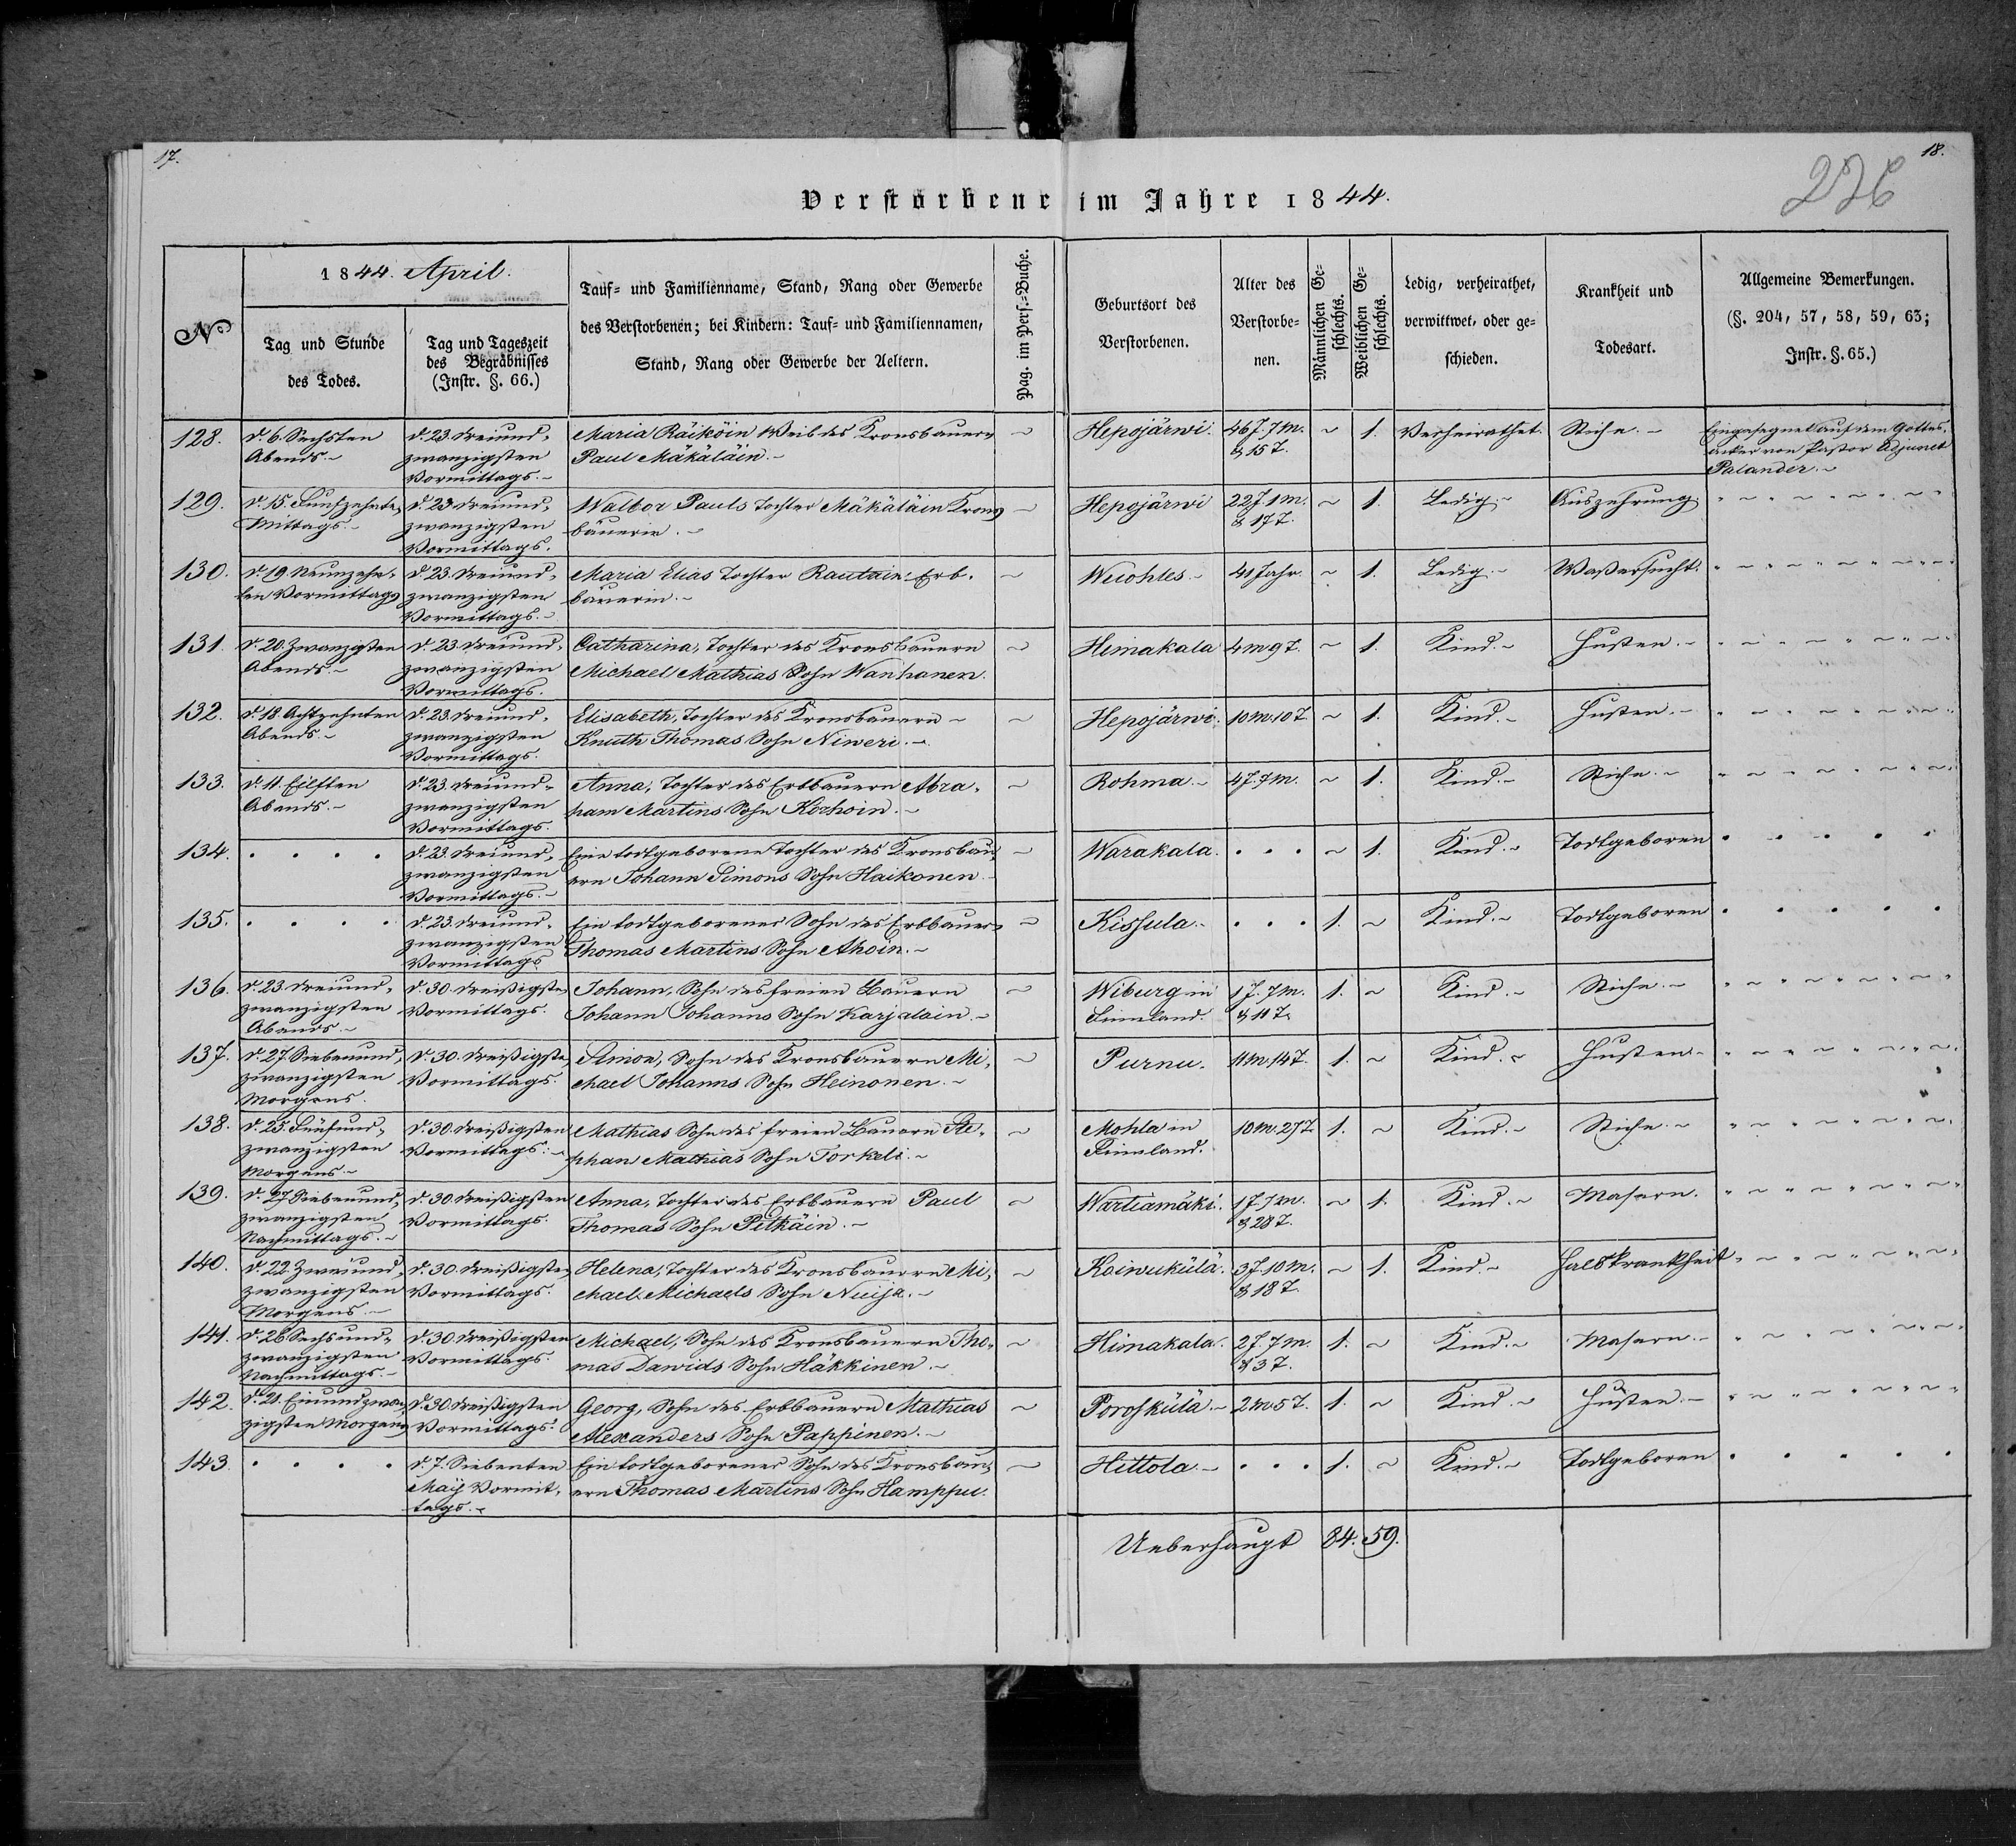 17.
18.
226
Verstorbene im Jahre 1844.
№
1844. April.
Tag und Stunde
des Todes.
Tag und Tageszeit
des Begräbnisses
(Instr. §. 66.)
Tauf- und Familienname, Stand, Rang oder Gewerbe
des Verstorbenen; bei Kindern: Tauf- und Familiennamen,
Stand, Rang oder Gewerbe der Aeltern.
Pag. im Pers.-Buche.
Geburtsort des
Verstorbenen.
Alter des
Verstorbe-
nen.
Männlichen Ge-
schlechts.
Weiblichen Ge-
schlechts.
Ledig, verheirathet,
verwittwet, oder ge-
schieden.
Krankheit und
Todesart.
Allgemeine Bemerkungen.
(§. 204, 57, 58, 59, 63;
Instr. §. 65.)
128. d. 6. Sechsten d. 23. dreiund- Maria Räiköin Weib des Kronsbauern ~ Hepojärwi. 46 J. 7 M. ~ 1. Verheirathet. Stiche. ~ Eingesegnet auf dem Gottes-
Abends. ~ zwanzigsten Paul Mäkäläin. ~ & 15 T. acker von Pastor Adjunct
Vormittags. ~ Palander. ~
129. d. 15. Funfzehnten d. 23. dreiund- Walbor Pauls Tochter Mäkäläin Krons ~ Hepojärwi 22 J. 1 M. ~ 1. Ledig. ~ Auszehrung " ~ " ~ " ~ " ~ "
Mittags. ~ zwanzigsten bäuerin. ~ & 17 T.
Vormittags.
130. d. 19. Neunzehn- d. 23. dreiund- Maria Elias Tochter Rautain Erb- ~ Wuohles. ~ 41 Jahr. ~ 1. Ledig. ~ Waßersucht. " ~ " ~ " ~ " ~ "
ten Vormittags zwanzigsten bäuerin. ~
Vormittags. ~
131. d. 20. Zwanzigsten d. 23. dreiund- Catharina, Tochter des Kronsbauern ~ Himakala 4 M 9 T. ~ 1. Kind. ~ Husten. ~ " ~ " ~ " ~ " ~ "
Abends. ~ zwanzigsten Michael Mathias Sohn Wanhanen.
Vormittags.
132. d. 18. Achtzehnten d. 23. dreiund- Elisabeth, Tochter des Kronsbauern ~ ~ Hepojärwi. 10 M. 10 T. ~ 1. Kind. ~ Husten. ~ " ~ " ~ " ~ " ~ "
Abends. ~ zwanzigsten Knuth Thomas Sohn Niweri. ~
Vormittags.
133. d. 11. Eilften d. 23. dreiund- Anna, Tochter des Erbbauern Abra- ~ Rohma. ~ 4 J. 7 M. ~ 1. Kind. ~ Stiche. ~ " ~ " ~ " ~ " ~ "
Abends. ~ zwanzigsten ham Martins Sohn Korhoin. ~
Vormittags.
134. . . . . d. 23. dreiund- Eine todtgeborene Tochter des Kronsbau- ~ Warakala. . . . ~ 1. Kind. ~ Todtgeboren . . . . .
zwanzigsten ern Johann Simons Sohn Haikonen. ~
Vormittags. ~
135. . . . . d. 23. dreiund- Ein todtgeborener Sohn des Erbbauern ~ Kissula. ~ . . . 1. ~ Kind. ~ Todtgeboren . . . . .
zwanzigsten Thomas Martins Sohn Ahoin. ~
Vormittags
136. d. 23. dreiund- d. 30. dreißigsten Johann, Sohn des freien Bauern ~ Wiburg in 1 J. 7 M. 1. ~ Kind. ~ Stiche. ~ " ~ " ~ " ~ " ~ "
zwanzigsten Vormittags. Johann Johanns Sohn Karjalain. ~ Finnland. & 11 T.
Abends. ~
137. d. 27. Siebenund- d. 30. dreißigsten Simon, Sohn des Kronsbauern Mi- ~ Purnu. 11 M. 14 T. 1. ~ Kind. ~ Husten. ~ " ~ " ~ " ~ " ~ "
zwanzigsten Vormittags. chael Johanns Sohn Heinonen. ~
Morgens.
138. d. 25. Fünfund- d. 30. dreißigsten Mathias Sohn des freien Bauern Ste- ~ Mohla in 10 M. 27 T 1. ~ Kind. ~ Stiche. ~ " ~ " ~ " ~ " ~ "
zwanzigsten Vormittags. ~ phan Mathias Sohn Torkeli. ~ Finnland.
Morgens. ~
139. d. 27. Siebenund- d. 30. dreißigsten Anna, Tochter des Erbbauern Paul ~ Wartiamäki. 1 J. 7 M. ~ 1. Kind. ~ Masern. " ~ " ~ " ~ " ~ "
zwanzigsten Vormittags. Thomas Sohn Pitkäin. ~ & 28 T.
Nachmittags. ~
140. d. 22. Zweiund- d. 30. dreißigsten Helena, Tochter des Kronsbauern Mi- ~ Koiwukülä. 3 J. 10 M. ~ 1. Kind. ~ Halskrankheit " ~ " ~ " ~ " ~ "
zwanzigsten Vormittags. chael Michaels Sohn Nuija. ~ & 18 T.
Morgens. ~
141. d. 26. Sechsund- d. 30. dreißigsten Michael, Sohn des Kronsbauern Tho- ~ Himakala. 2 J. 7 M. 1. ~ Kind. ~ Masern. ~ " ~ " ~ " ~ " ~ "
zwanzigsten Vormittags. mas Dawids Sohn Häkkinen. ~ & 3 T.
Nachmittags. ~
142. d. 21. Einundzwan- d. 30. dreißigsten Georg, Sohn des Erbbauern Mathias ~ Poroskülä. ~ 2 M 5 T. 1. ~ Kind. ~ Husten. ~ " ~ " ~ " ~ " ~ "
zigsten Morgens Vormittags. Alexanders Sohn Pappinen. ~
143. . . . . d. 7. Siebenten Ein todtgeborener Sohn des Kronsbau- ~ Hittola. ~ . . . 1. ~ Kind. ~ Todtgeboren . . . . .
Maij Vormit- ern Thomas Martins Sohn Hamppu.
tags. ~
Ueberhaupt 84. 59.